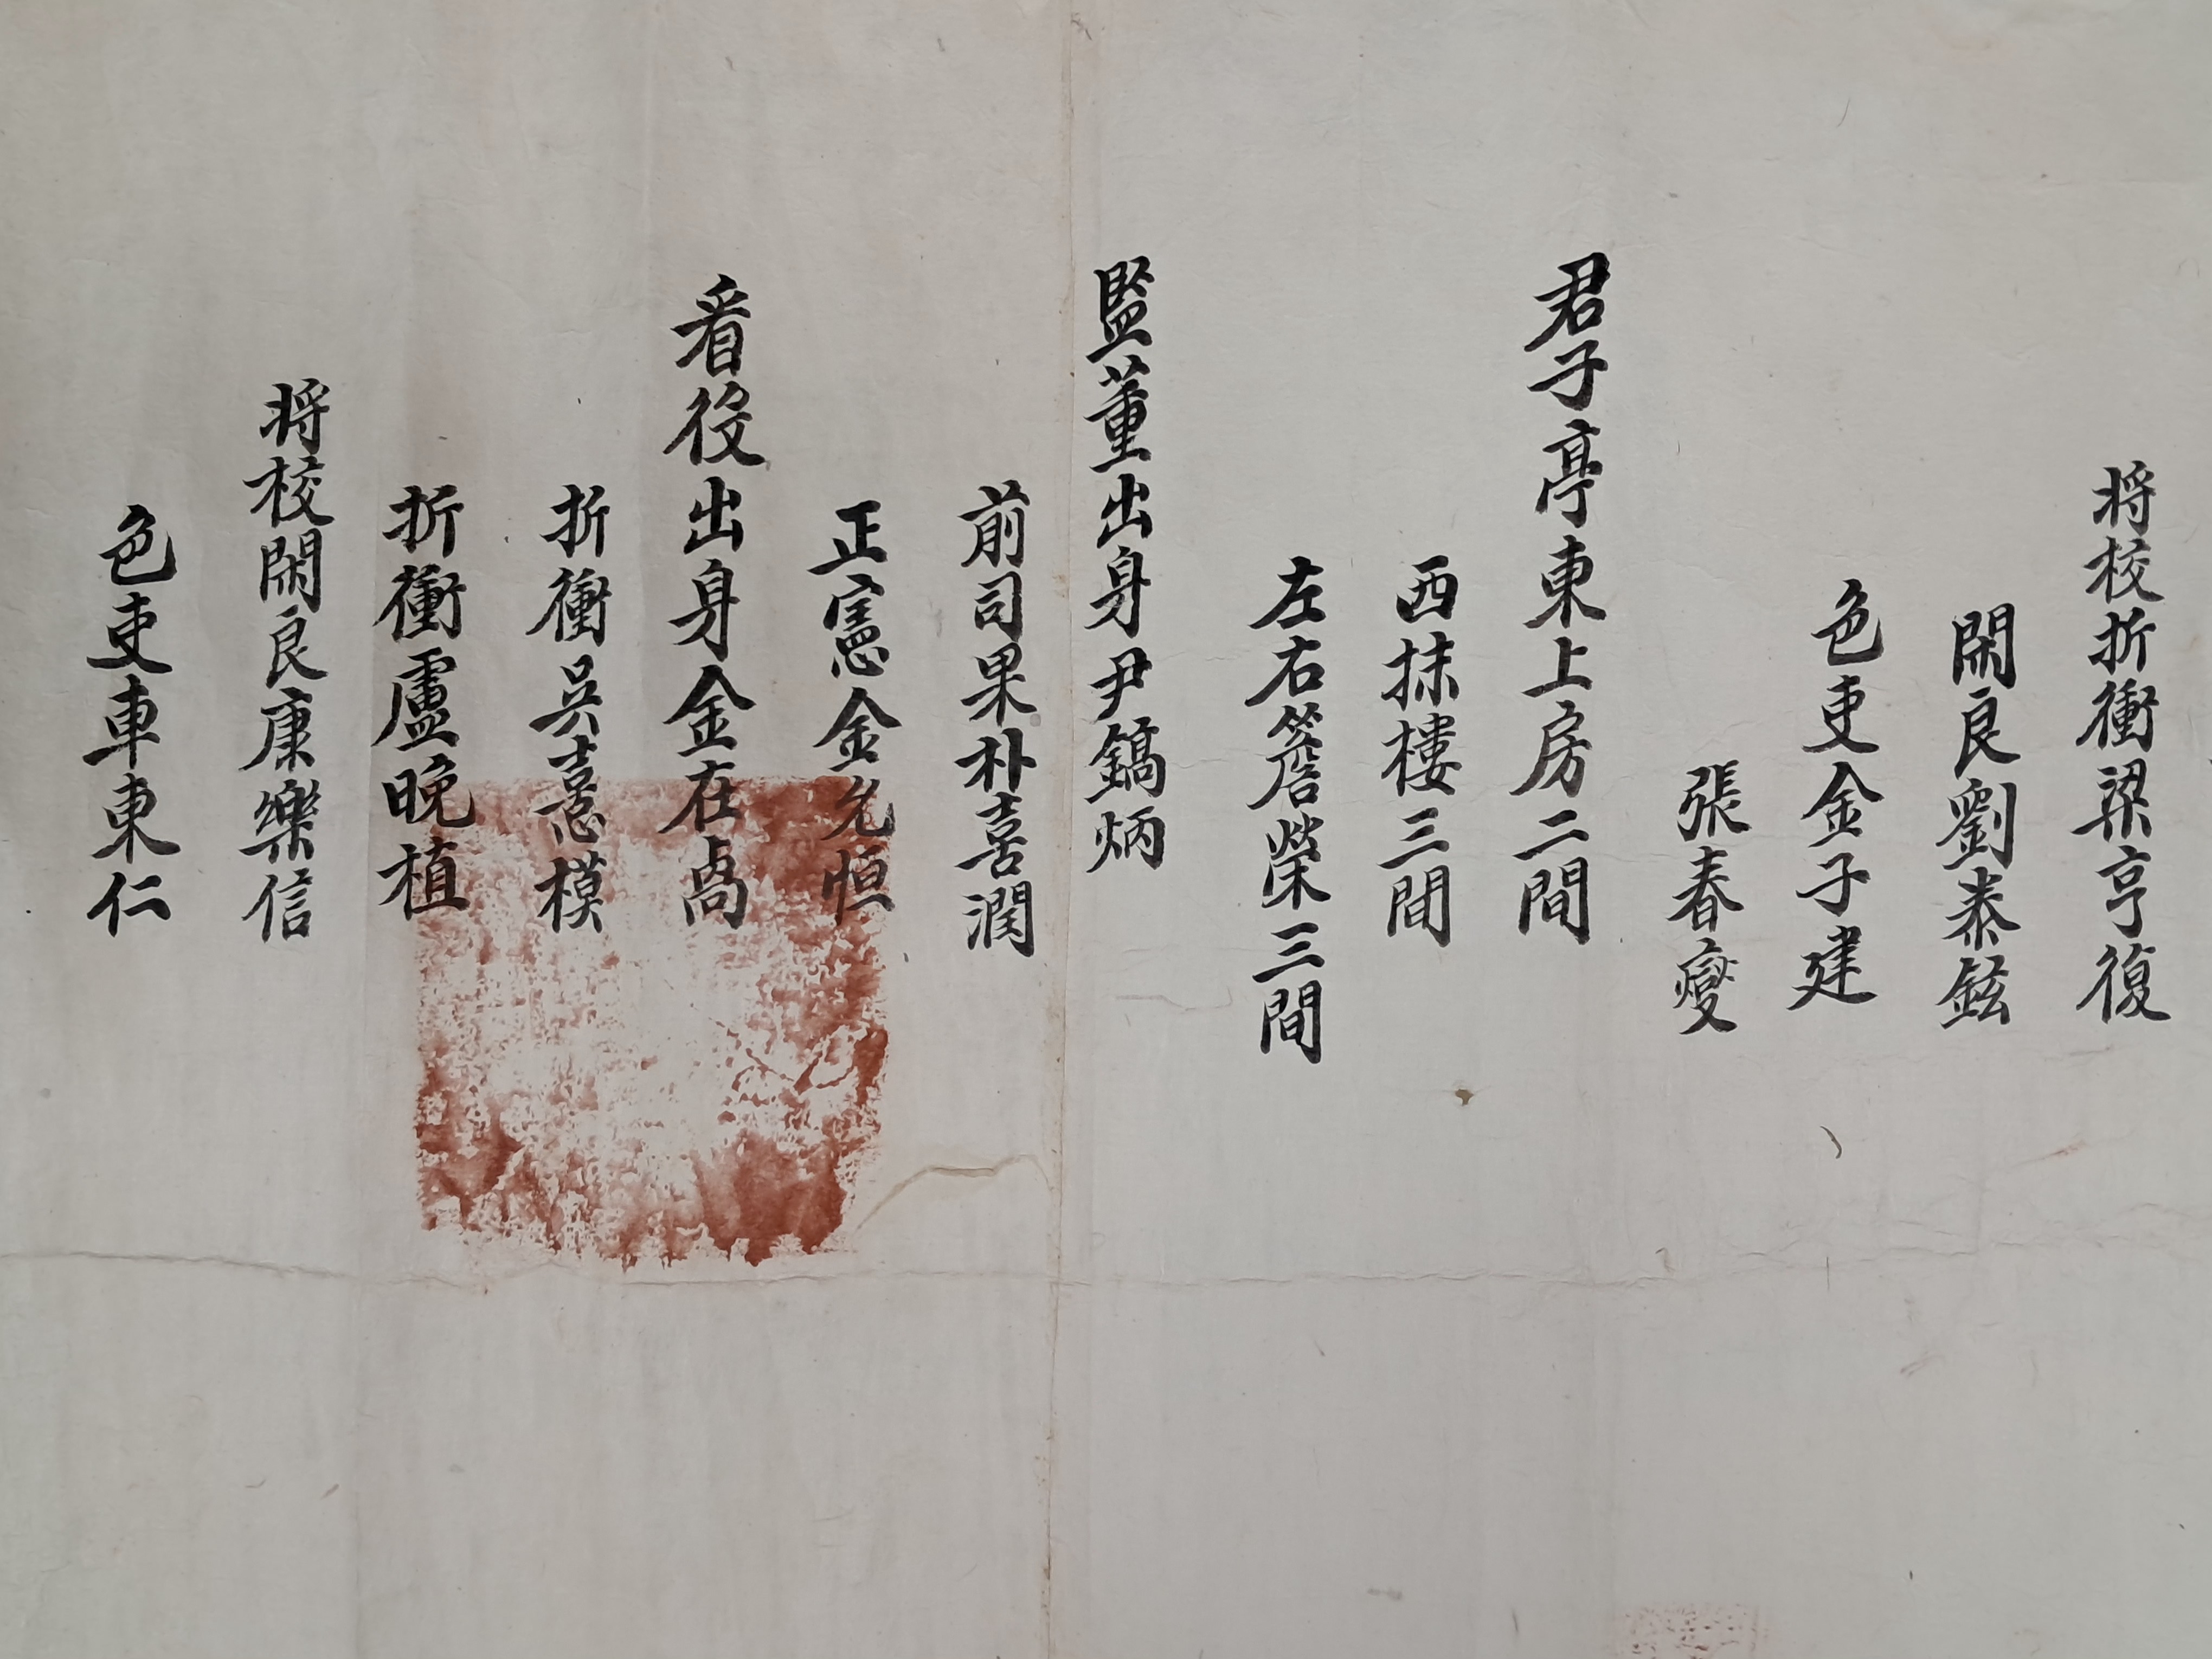 将校折衝梁亨復
閑良劉泰鉉
色吏金子建
張春燮
君子亭東上房二間
西抹樓三間
左右簷榮三間
監董出身尹鐈炳
前司果朴喜潤
正憲金允恒
看役出身金在卨
折衝吳憙模
折衝盧晩植
将校閑良康樂信
色吏車東仁